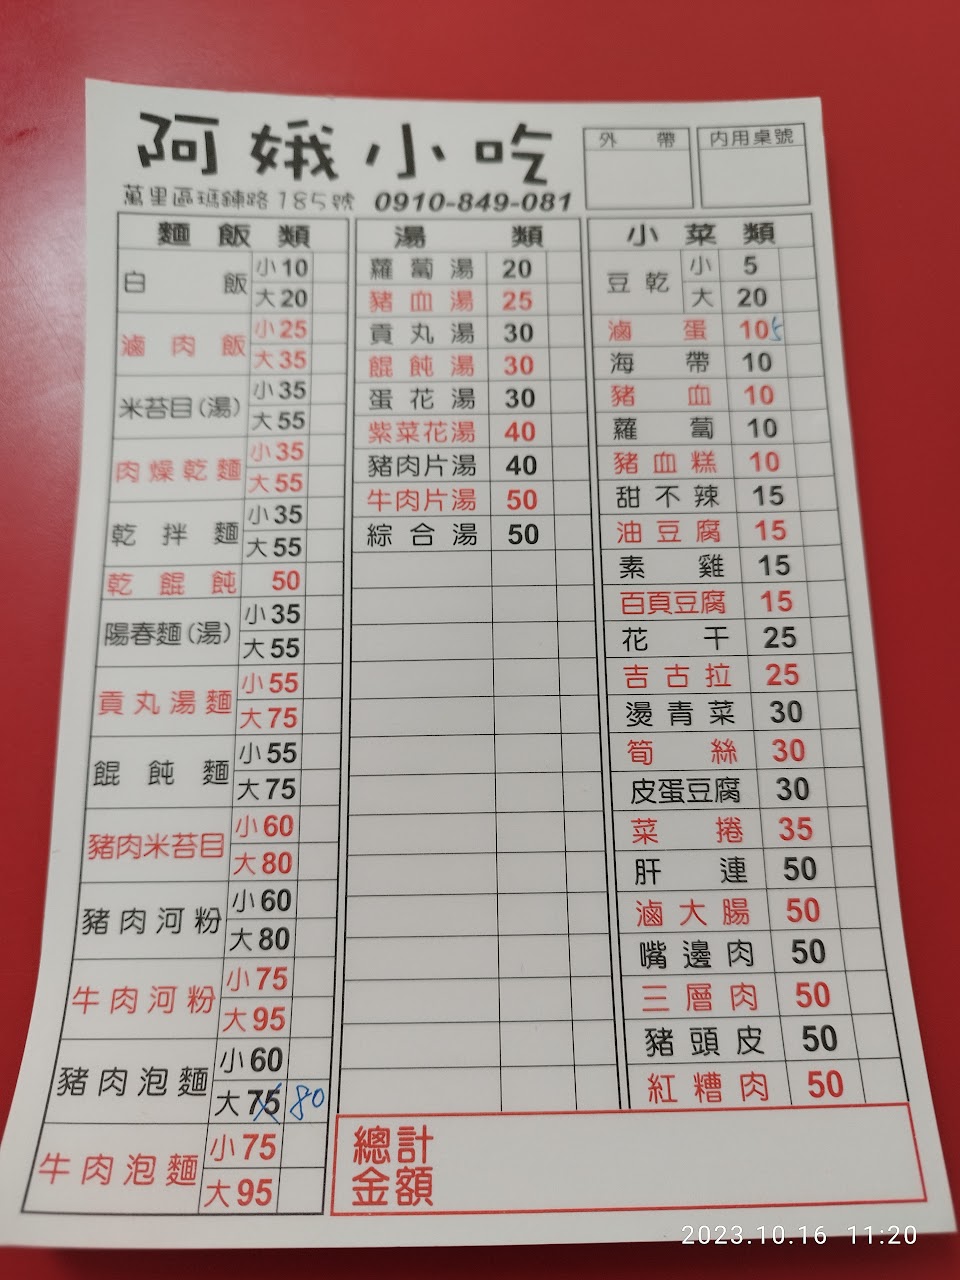 阿娥小吃
萬里區瑪鋉路185號 0910-849-081
外帶
內用桌號
麵飯類
白飯 小10
大20
滷肉飯 小25
大35
米苔目(湯) 小35
大55
肉燥乾麵 小35
大55
乾拌麵 小35
大55
乾餛飩 50
陽春麵(湯) 小35
大55
貢丸湯麵 小55
大75
餛飩麵 小55
大75
豬肉米苔目 小60
大80
豬肉河粉 小60
大80
牛肉河粉 小75
大95
豬肉泡麵 小60
大75 80
牛肉泡麵 小75
大95
湯類
蘿蔔湯 20
豬血湯 25
貢丸湯 30
餛飩湯 30
蛋花湯 30
紫菜花湯 40
豬肉片湯 40
牛肉片湯 50
綜合湯 50
小菜類
豆乾 小 5
大 20
滷蛋 105
海帶 10
豬血 10
蘿蔔 10
豬血糕 10
甜不辣 15
油豆腐 15
素雞 15
百頁豆腐 15
花干 25
吉古拉 25
燙青菜 30
筍絲 30
皮蛋豆腐 30
菜捲 35
肝連 50
滷大腸 50
嘴邊肉 50
三層肉 50
豬頭皮 50
紅糟肉 50
總計
金額
2023.10.16 11:20